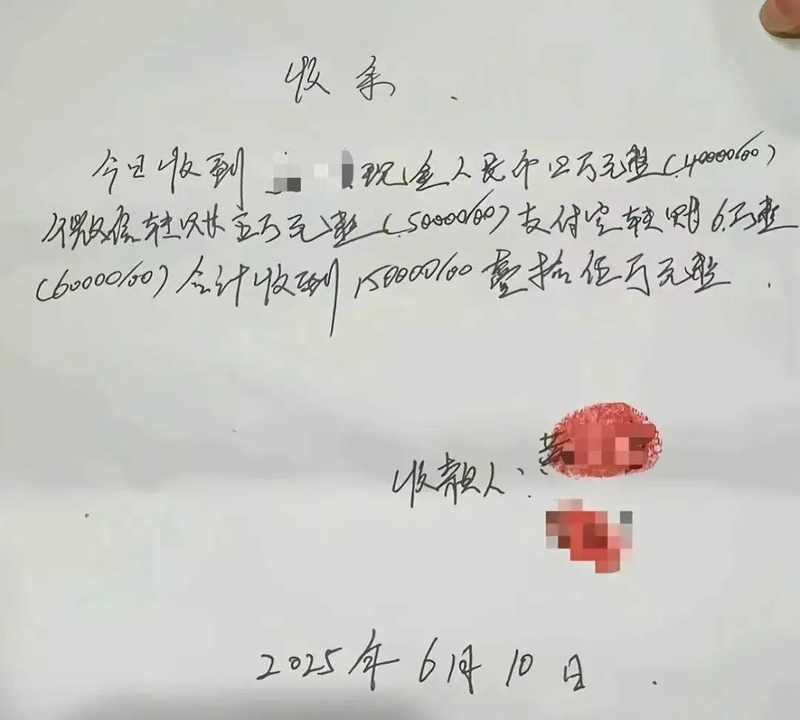 收条.
今日收到 现金人民币四万元整(40000/00)
微信转账五万元整(50000/00)支付宝转账6万整
(60000/00)合计收到150000/00壹拾伍万元整.
收款人: 黄
2025年6月10日.